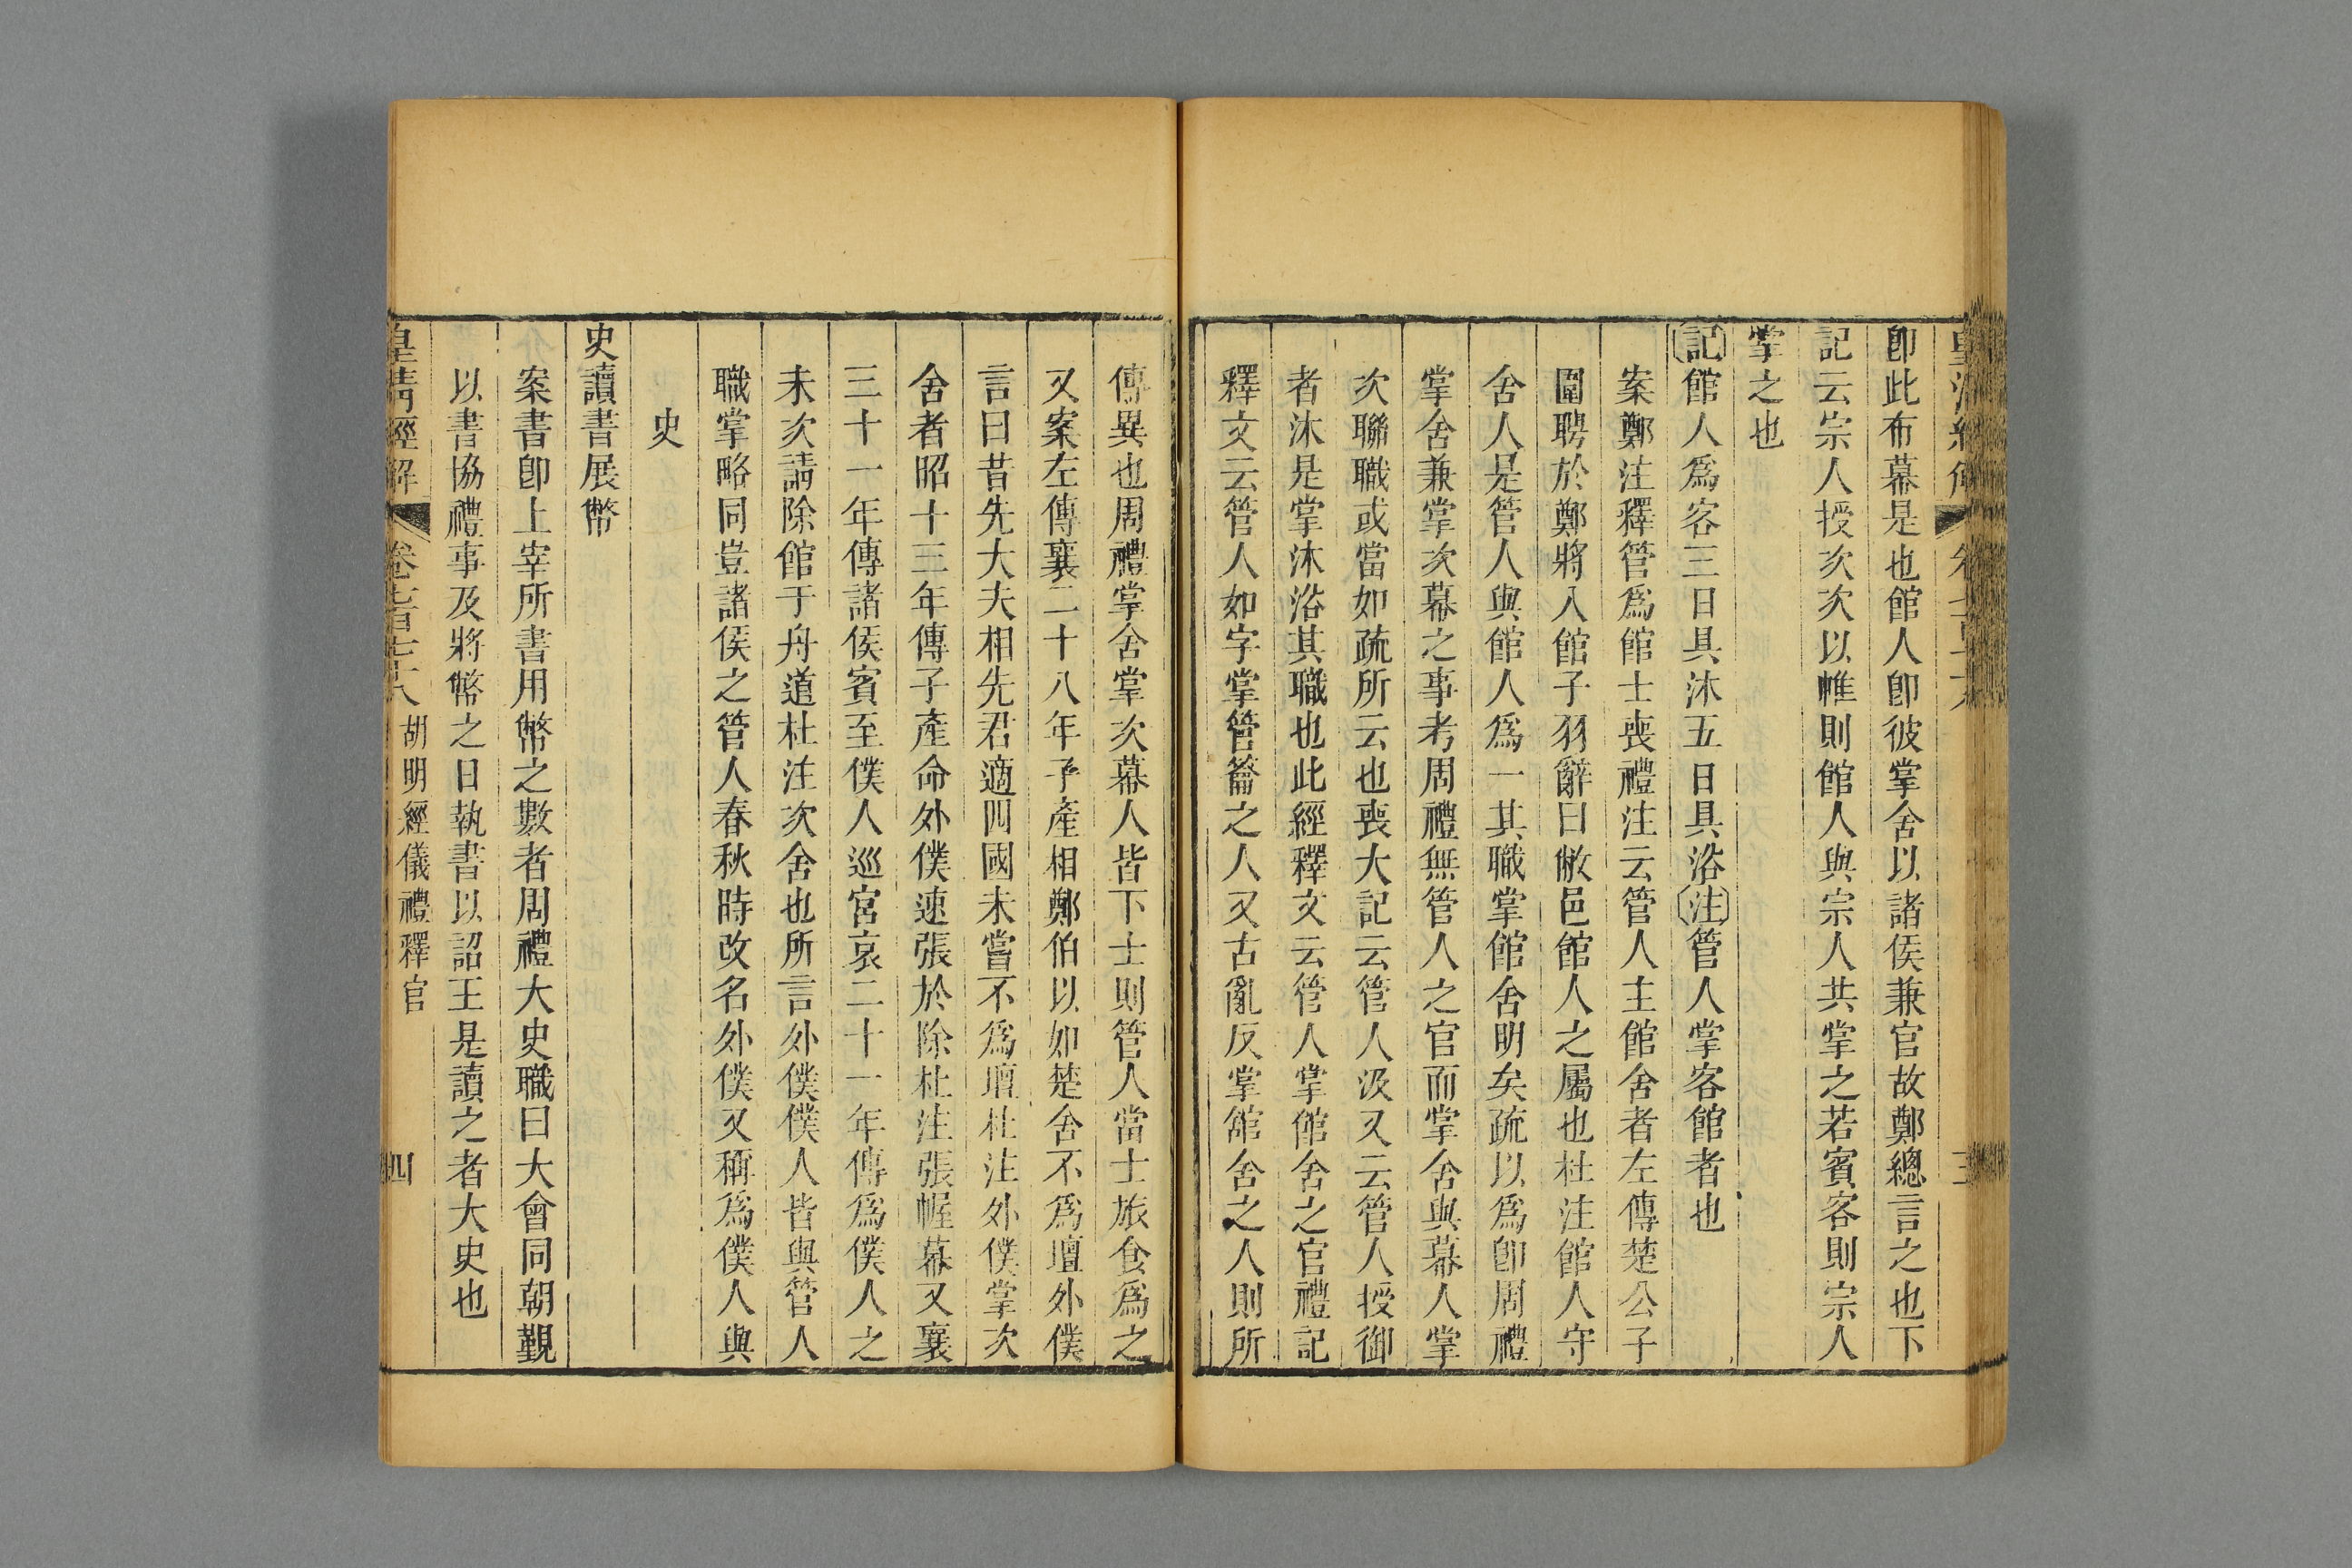 卽此布幕是也館人卽彼掌舍以諸侯兼官故鄭總言之也下
記云宗人授次次以帷則館人與宗人共掌之若賓客則宗人
掌之也
記館人爲客三日具沐五日具浴注管人掌客館者也
案鄭注釋管爲館士喪禮注云管人主館舍者左傳楚公子
圍聘於鄭將入館子羽辭曰敝邑館人之屬也杜注館人守
舍人是管人與館人爲一其職掌館舍明矣疏以爲卽周禮
掌舍兼掌次幕之事考周禮無管人之官而掌舍與幕人掌
次聯職或當如疏所云也喪大記云管人汲又云管人授御
者沐是掌沐浴其職也此經釋文云管人掌館舍之官禮記
釋文云管人如字掌管籥之人又古亂反掌舘舍之人則所
傳異也周禮掌舍掌次幕人皆下士則管人當士旅食爲之
又案左傳襄二十八年子產相鄭伯以如楚舍不爲壇外僕
言曰昔先大夫相先君適四國未嘗不爲壇杜注外僕掌次
舍者昭十三年傳子產命外僕速張於除杜注張幄幕又襄
三十一年傳諸侯賓至僕人巡宮哀二十一年傳爲僕人之
未次請除館于舟道杜注次舍也所言外僕僕人皆與管人
職掌略同豈諸侯之管人春秋時改名外僕又稱爲僕人與
史
史讀書展幣
案書卽上宰所書用幣之數者周禮大史職曰大會同朝覲
以書協禮事及將幣之日執書以詔王是讀之者大史也
皇清經解 卷七百七十八 胡明經儀禮釋官 四